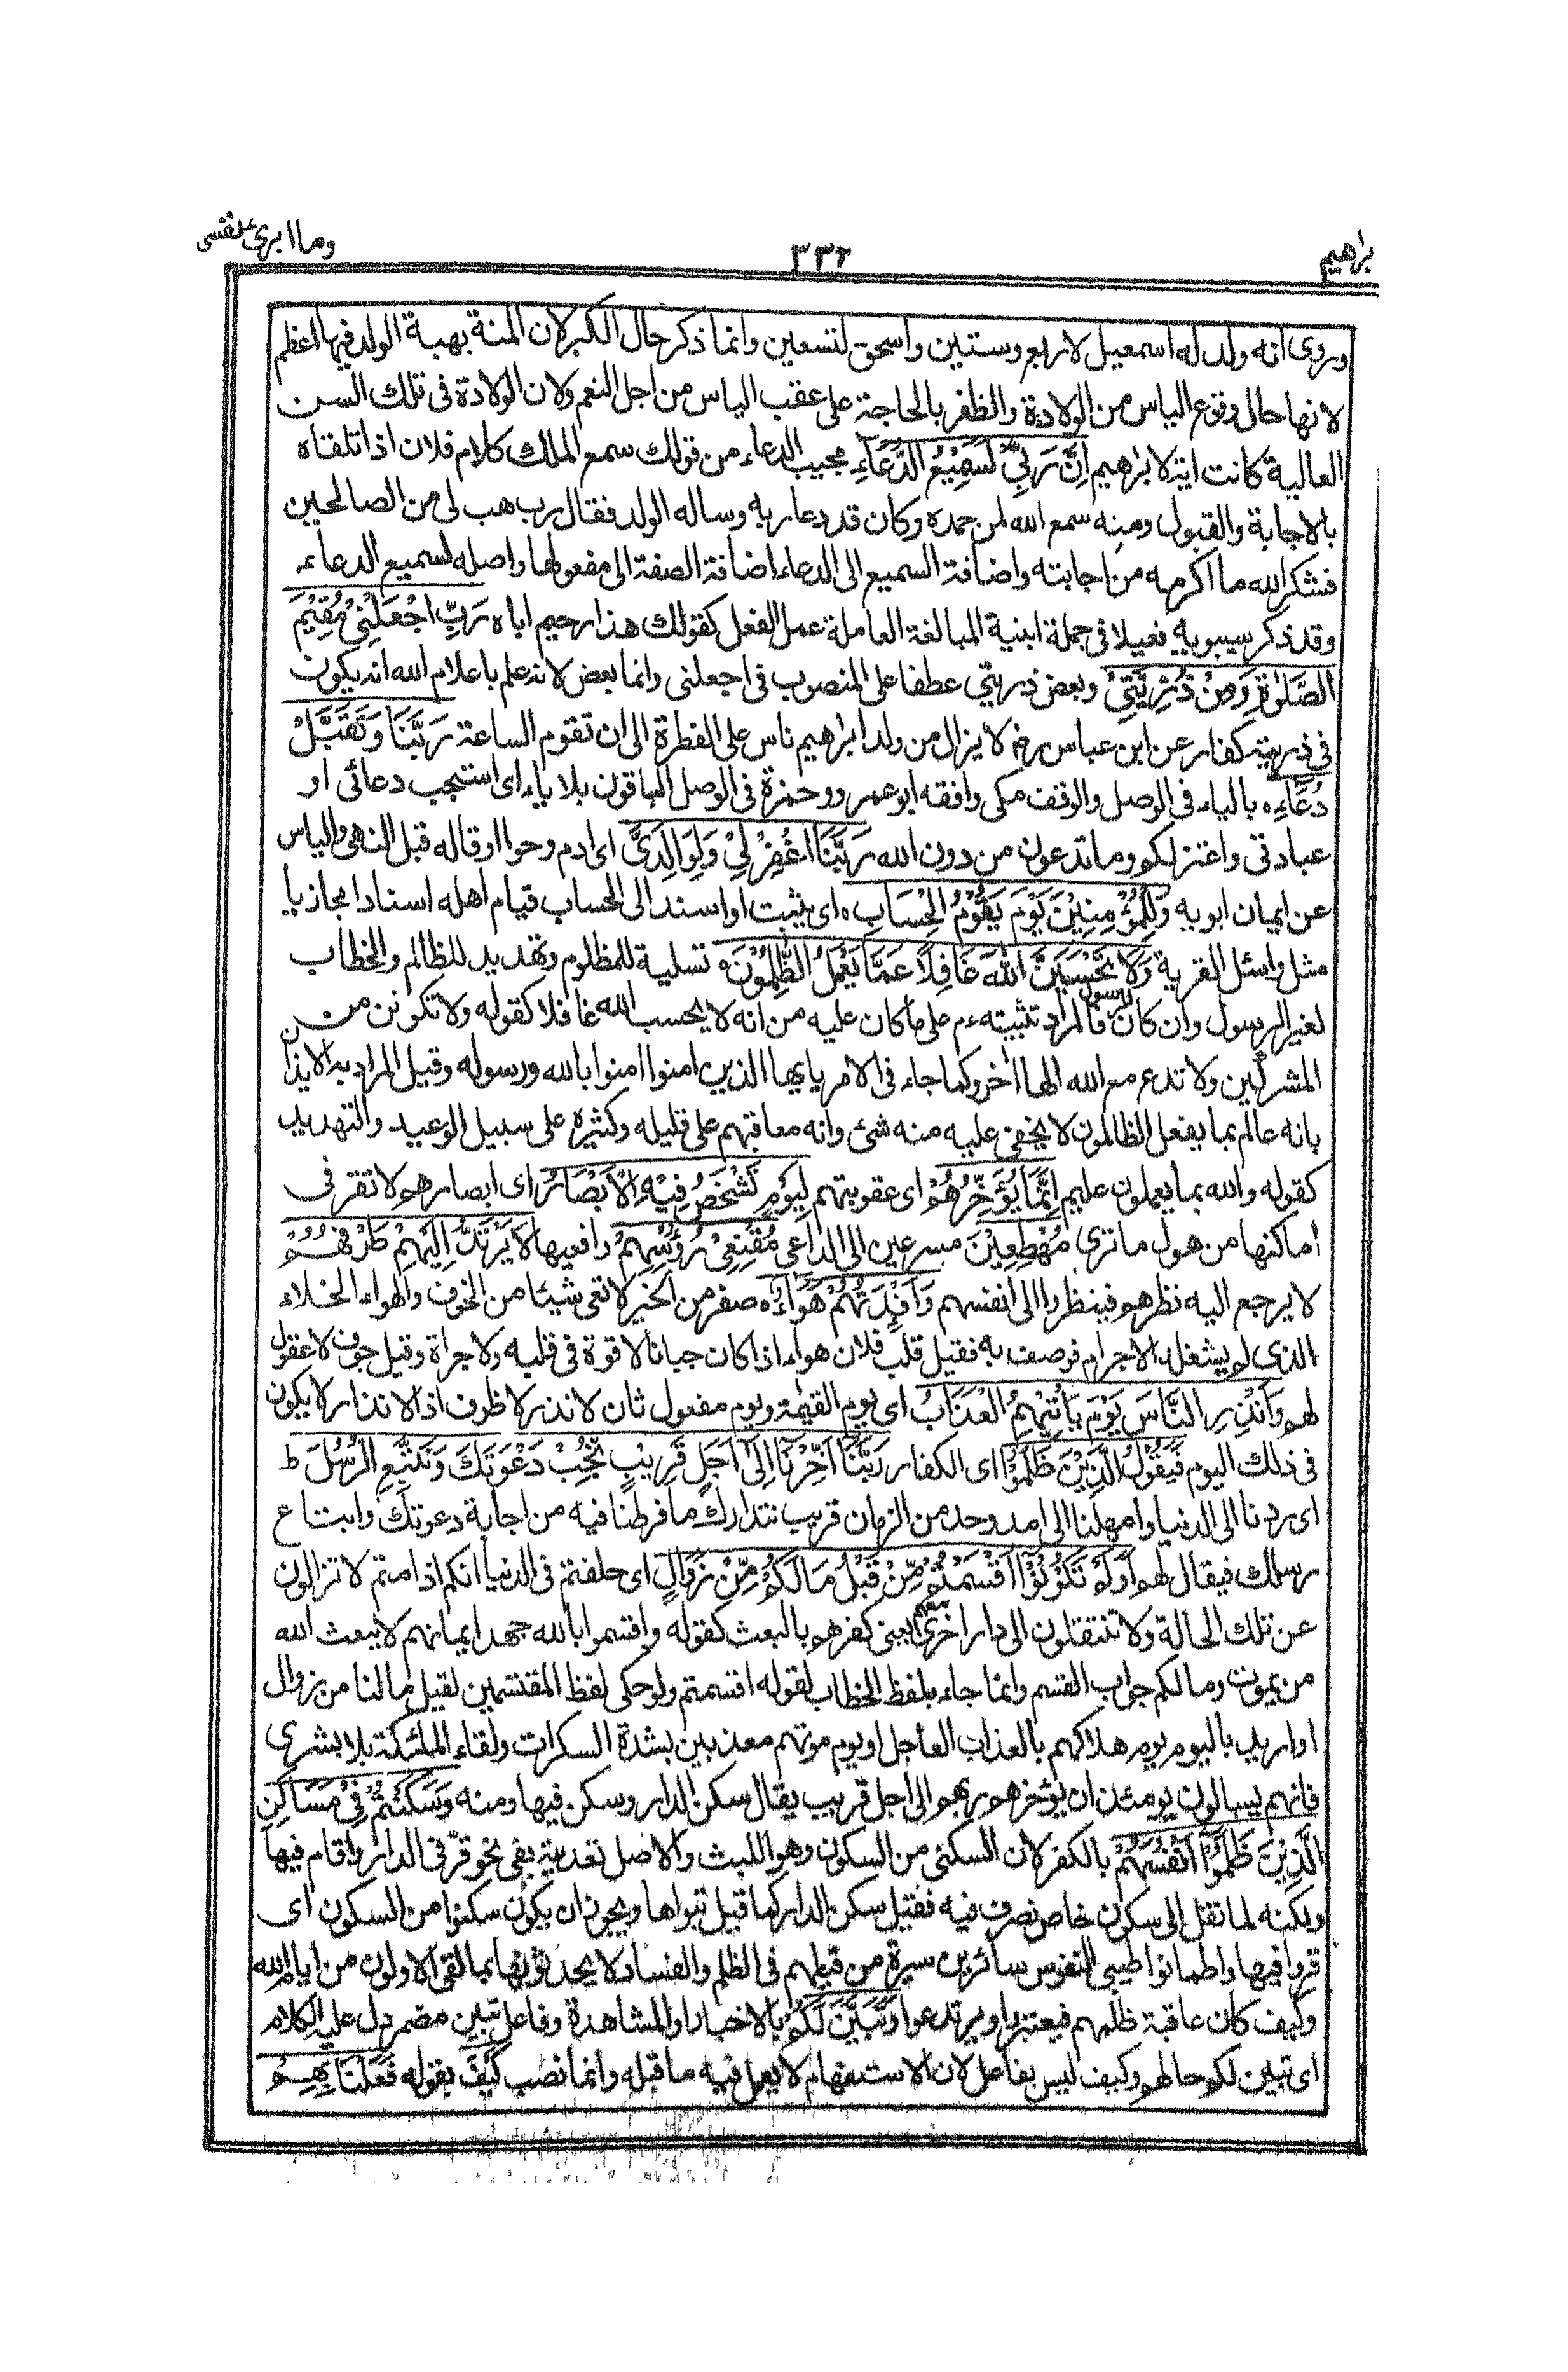 براهيم
٣٣٢
وما ابرئ نفسى
وروى انه ولد له اسمعيل لاربع وستين واسحق لتسعين وانما ذكر حال الكبر لان المنة بهبة الولد فيها اعظم
لانها حال وقوع الياس من الولادة والظفر بالحاجة على عقب الياس من اجل النعم ولان الولادة فى تلك السن
العالية كانت اية لابراهيم اِنَّ رَبِّيْ لَسَمِيْعُ الدُّعَآءِ مجيب الدعاء من قولك سمع الملك كلام فلان اذا تلقاه
بالاجابة والقبول ومنه سمع الله لمن حمده وكان قد دعا ربه وساله الولد فقال رب هب لى من الصالحين
فشكر لله ما اكرمه من اجابته واضافة السميع الى الدعاء اضافة الصفة الى مفعولها واصله لسميع الدعاء
وقد ذكر سيبويه فعيلا فى جملة ابنية المبالغة العاملة عمل الفعل كقولك هذا رحيم اباه رَبِّ اجْعَلْنِيْ مُقِيْمَ
الصَّلٰوةِ وَمِنْ ذُرِّيَّتِيْ وبعض ذريتي عطفا على المنصوب فى اجعلنى وانما بعض لانه علم باعلام الله انه يكون
فى ذريته كفار عن ابن عباس رض لا يزال من ولد ابراهيم ناس على الفطرة الى ان تقوم الساعة رَبَّنَا وَتَقَبَّلْ
دُعَآءِ ه بالياء فى الوصل والوقف مكى وافقه ابو عمرو وحمزة فى الوصل الباقون بلا ياء اى استجب دعائى او
عبادتى واعتزلكم وما تدعون من دون الله رَبَّنَا اغْفِرْ لِيْ وَلِوَالِدَيَّ اى ادم وحوا او قاله قبل النهى والياس
عن ايمان ابويه وَلِلْمُؤْمِنِيْنَ يَوْمَ يَقُوْمُ الْحِسَابُ ه اى يثبت او اسند الى الحساب قيام اهله اسنادا مجازيا
مثل واسئل القرية وَلَا تَحْسَبَنَّ اللّٰهَ غَافِلًا عَمَّا يَعْمَلُ الظّٰلِمُوْنَ ه تسلية للمظلوم وتهديد للظالم والخطاب
لغير الرسول وان كان للرسول فالمراد تثبيته ء م على ما كان عليه من انه لا يحسب الله غافلا كقوله ولا تكونن من
المشركين ولا تدع مع الله الها اخر وكما جاء فى الامر يايها الذين امنوا امنوا بالله ورسوله وقيل المراد به الايذان
بانه عالم بما يفعل الظالمون لا يخفى عليه منه شئ وانه معاقبهم على قليله وكثيره على سبيل الوعيد والتهديد
كقوله والله بما يعملون عليم اِنَّمَا يُؤَخِّرُهُمْ اى عقوبتهم لِيَوْمٍ تَشْخَصُ فِيْهِ الْاَبْصَارُ اى ابصارهم لا تقر فى
اماكنها من هول ما ترى مُهْطِعِيْنَ مسرعين الى الداعى مُقْنِعِيْ رُؤُسِهِمْ رافعيها لَا يَرْتَدُّ اِلَيْهِمْ طَرْفُهُمْ
لا يرجع اليه نظرهم فينظروا الى انفسهم وَاَفْئِدَتُهُمْ هَوَآءٌ ه صفر من الخير لا تعى شيئا من الخوف والهواء الخلاء
الذى لم يشغله الاجرام فوصف به فقيل قلب فلان هواء اذا كان جبانا لا قوة فى قلبه ولا جراة وقيل جوف لا عقول
لهم وَاَنْذِرِ النَّاسَ يَوْمَ يَاْتِيْهِمُ الْعَذَابُ اى يوم القيٰمة ويوم مفعول ثان لانذر لا ظرف اذ الانذار لا يكون
فى ذلك اليوم فَيَقُوْلُ الَّذِيْنَ ظَلَمُوْا اى الكفار رَبَّنَا اَخِّرْنَا اِلٰى اَجَلٍ قَرِيْبٍ نُّجِبْ دَعْوَتَكَ وَنَتَّبِعِ الرُّسُلَ ط
اى ردنا الى الدنيا وامهلنا الى امد وحد من الزمان قريب نتدارك ما فرطنا فيه من اجابة دعوتك واتباع
رسلك فيقال لهم اَوَلَمْ تَكُوْنُوْا اَقْسَمْتُمْ مِّنْ قَبْلُ مَا لَكُمْ مِّنْ زَوَالٍ اى حلفتم فى الدنيا انكم اذا متم لا تزالون
عن تلك الحالة ولا تنتقلون الى دار اخرى يعنى كفرهم بالبعث كقوله واقسموا بالله جهد ايمانهم لا يبعث الله
من يموت وما لكم جواب القسم وانما جاء بلفظ الخطاب لقوله اقسمتم ولو حكى لفظ المقسمين لقيل ما لنا من زوال
او اريد باليوم يوم هلاكهم بالعذاب العاجل او يوم موتهم معذبين بشدة السكرات ولقاء الملئكة بلا بشرى
فانهم يسالون يومئذ ان يؤخرهم ربهم الى اجل قريب يقال سكن الدار وسكن فيها ومنه وَسَكَنْتُمْ فِيْ مَسَاكِنِ
الَّذِيْنَ ظَلَمُوْا اَنْفُسَهُمْ بالكفر لان السكنى من السكون وهو اللبث والاصل تعديته بفى نحو قرّ فى الدار واقام فيها
ولكنه لما نقل الى سكون خاص تصرف فيه فقيل سكن الدار كما قيل تبواها ويجوز ان يكون سكنوا من السكون اى
قروا فيها واطمانوا طيبى النفوس سائرين سيرة من قبلهم فى الظلم والفساد لا يحدثونها بما لقى الاولون من ايام الله
وكيف كان عاقبة ظلمهم فيعتبروا ويرتدعوا وَتَبَيَّنَ لَكُمْ بالاخبار او المشاهدة وفاعل تبين مضمر دل عليه الكلام
اى تبين لكم حالهم وكيف ليس بفاعل لان الاستفهام لا يعمل فيه ما قبله وانما نصب كَيْفَ بقوله فَعَلْنَا بِهِمْ